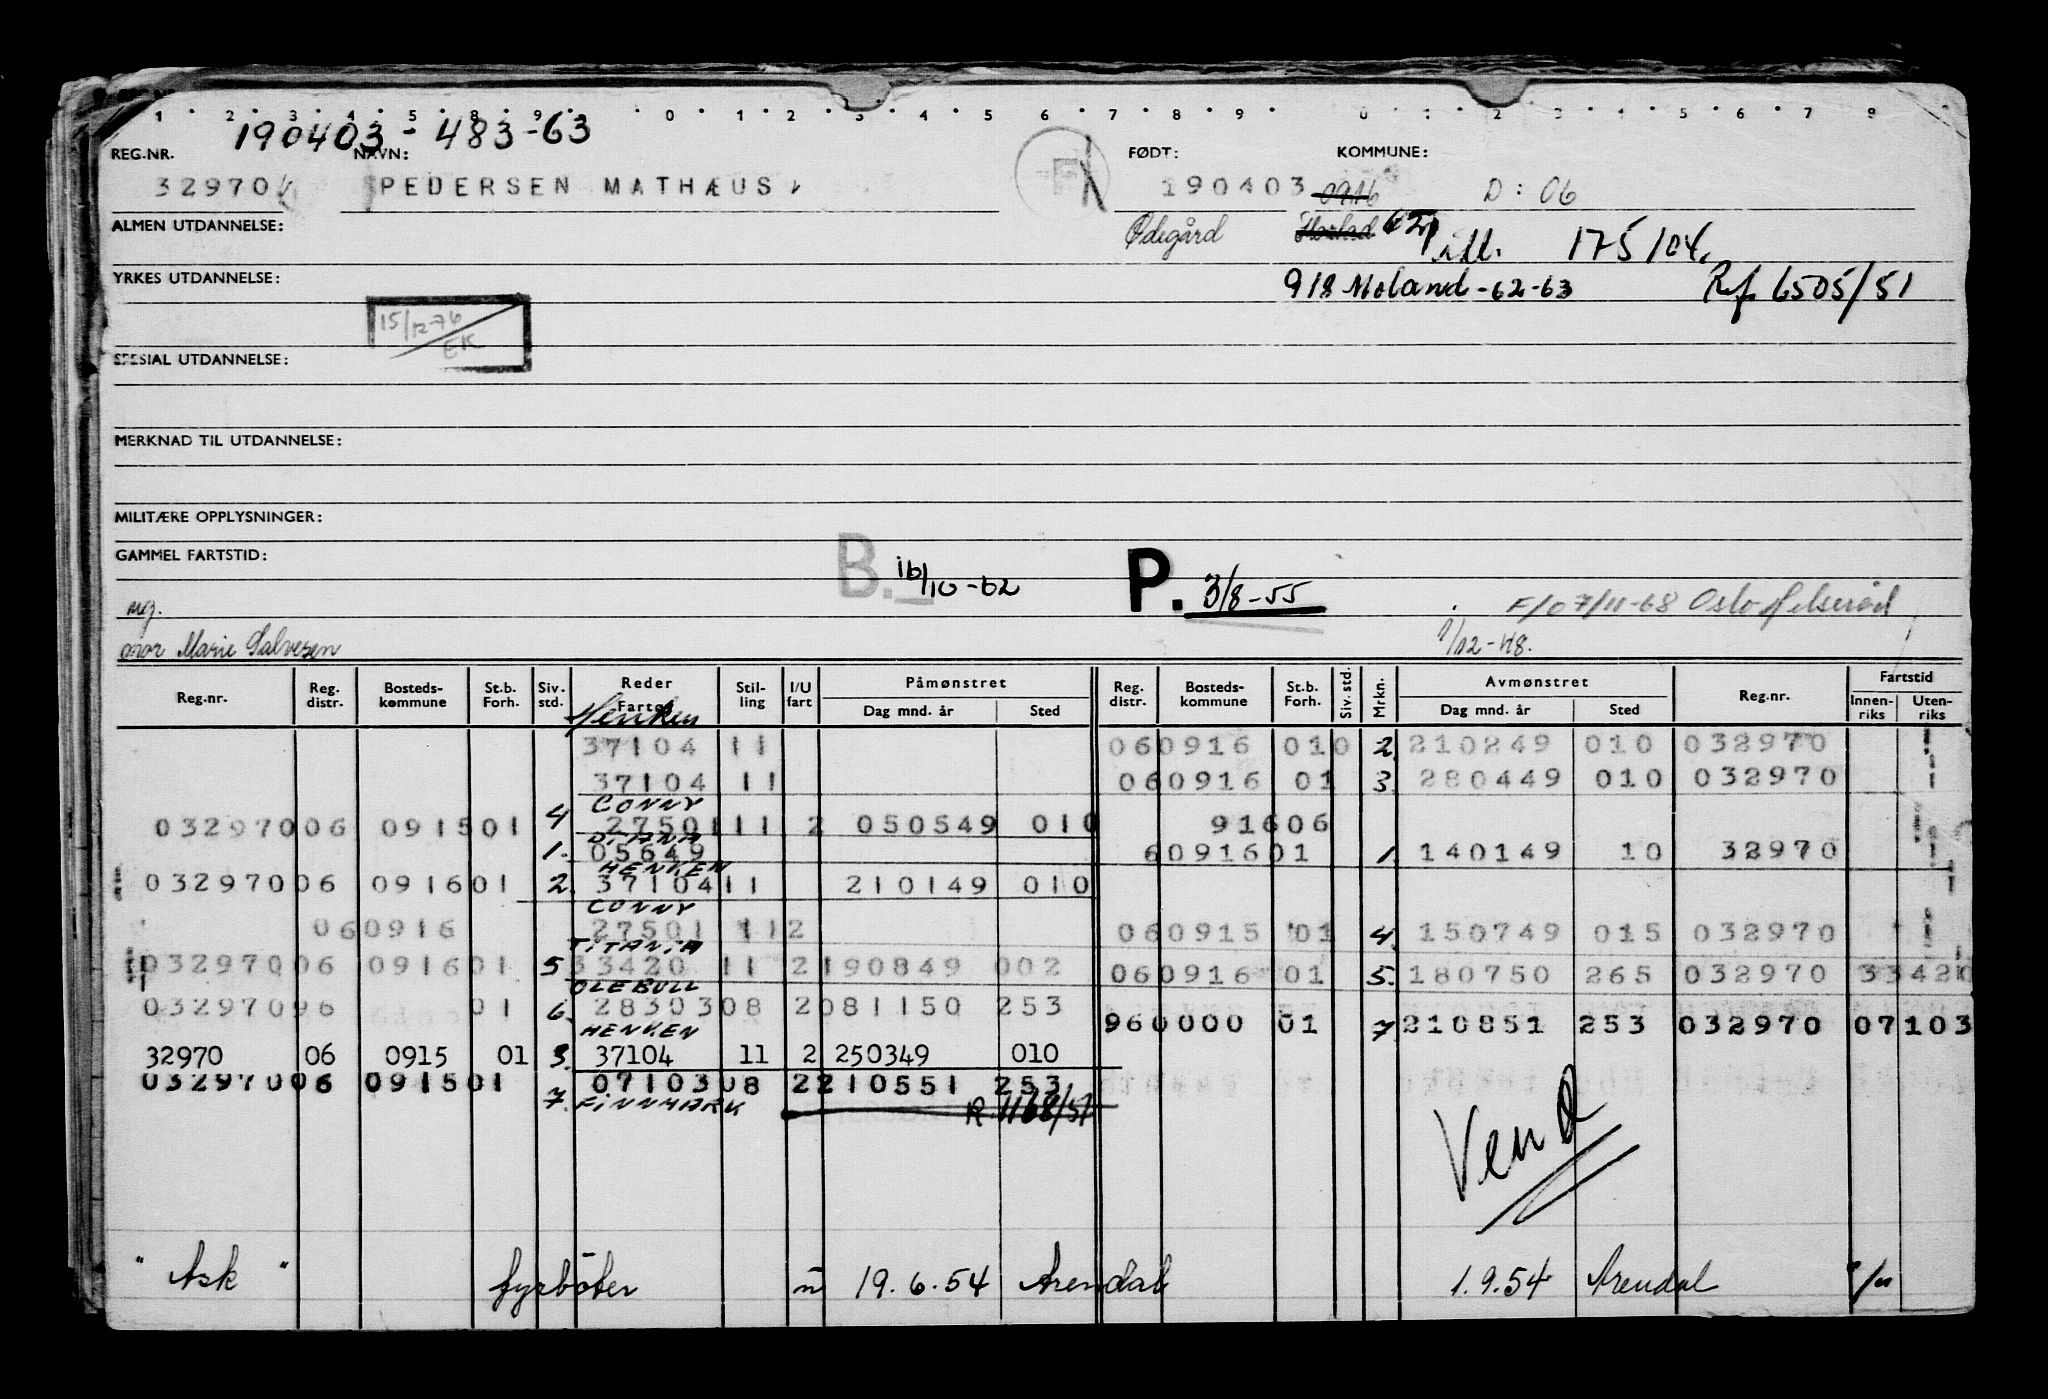 1 2 3 4 5 8 9 0 1 2 3 4 5 6 7 8 9 0 1 2 3 4 5 6 7 8
190403 - 483-63
REG.NR. NAVN: FØDT: KOMMUNE:
32970 PEDERSEN MATHÆUS F 190403 0916 D: 06
ALMEN UTDANNELSE: Ødegård 175/04.
YRKES UTDANNELSE: 918 Moland - 62-63 Ref 6505/51
15/12-76
EK
SPESIAL UTDANNELSE:
MERKNAD TIL UTDANNELSE:
MILITÆRE OPPLYSNINGER:
GAMMEL FARTSTID:
B. 16/10-62 P. 3/8-55
ug. F/O 7/11-68 Oslo
mor Marie Salvesen 1/12-48.
Reg.nr. Reg. distr. Bosteds-kommune St.b. Forh. Siv. std. Reder Fartøy Stil-ling I/U fart Påmønstret Dag mnd. år Sted Reg. distr. Bosteds-kommune St.b. Forh. Siv. std. Mrkn. Avmønstret Dag mnd. år Sted Reg.nr. Fartstid Innen-riks Uten-riks
Henken
37104 11 060916 010 2 210249 010 032970
37104 11 060916 01 3. 280449 010 032970
CONNY
032970 06 0915 01 4 27501 11 2 050549 010 916 06
DIANA
1. 05649 6 0916 01 1. 140149 10 32970
HENKEN
032970 06 0916 01 2. 37104 11 210149 010
CONNY
06 0916 27501 11 2 060915 01 4. 150749 015 032970
TITANIA
032970 06 0916 01 5 33420 11 2 190849 002 060916 01 5. 180750 265 032970 33420
OLE BULL
032970 96 01 6. 28303 08 2 081150 253
960000 01 7 210851 253 032970 07103
HENKEN
32970 06 0915 01 3. 37104 11 2 250349 010
032970 06 0915 01 07103 08 2 210551 253
7. FINNMARK R. 1168/51
Vend
"Ask" fyrbøter u 19.6.54 Arendal 1.9.54 Arendal